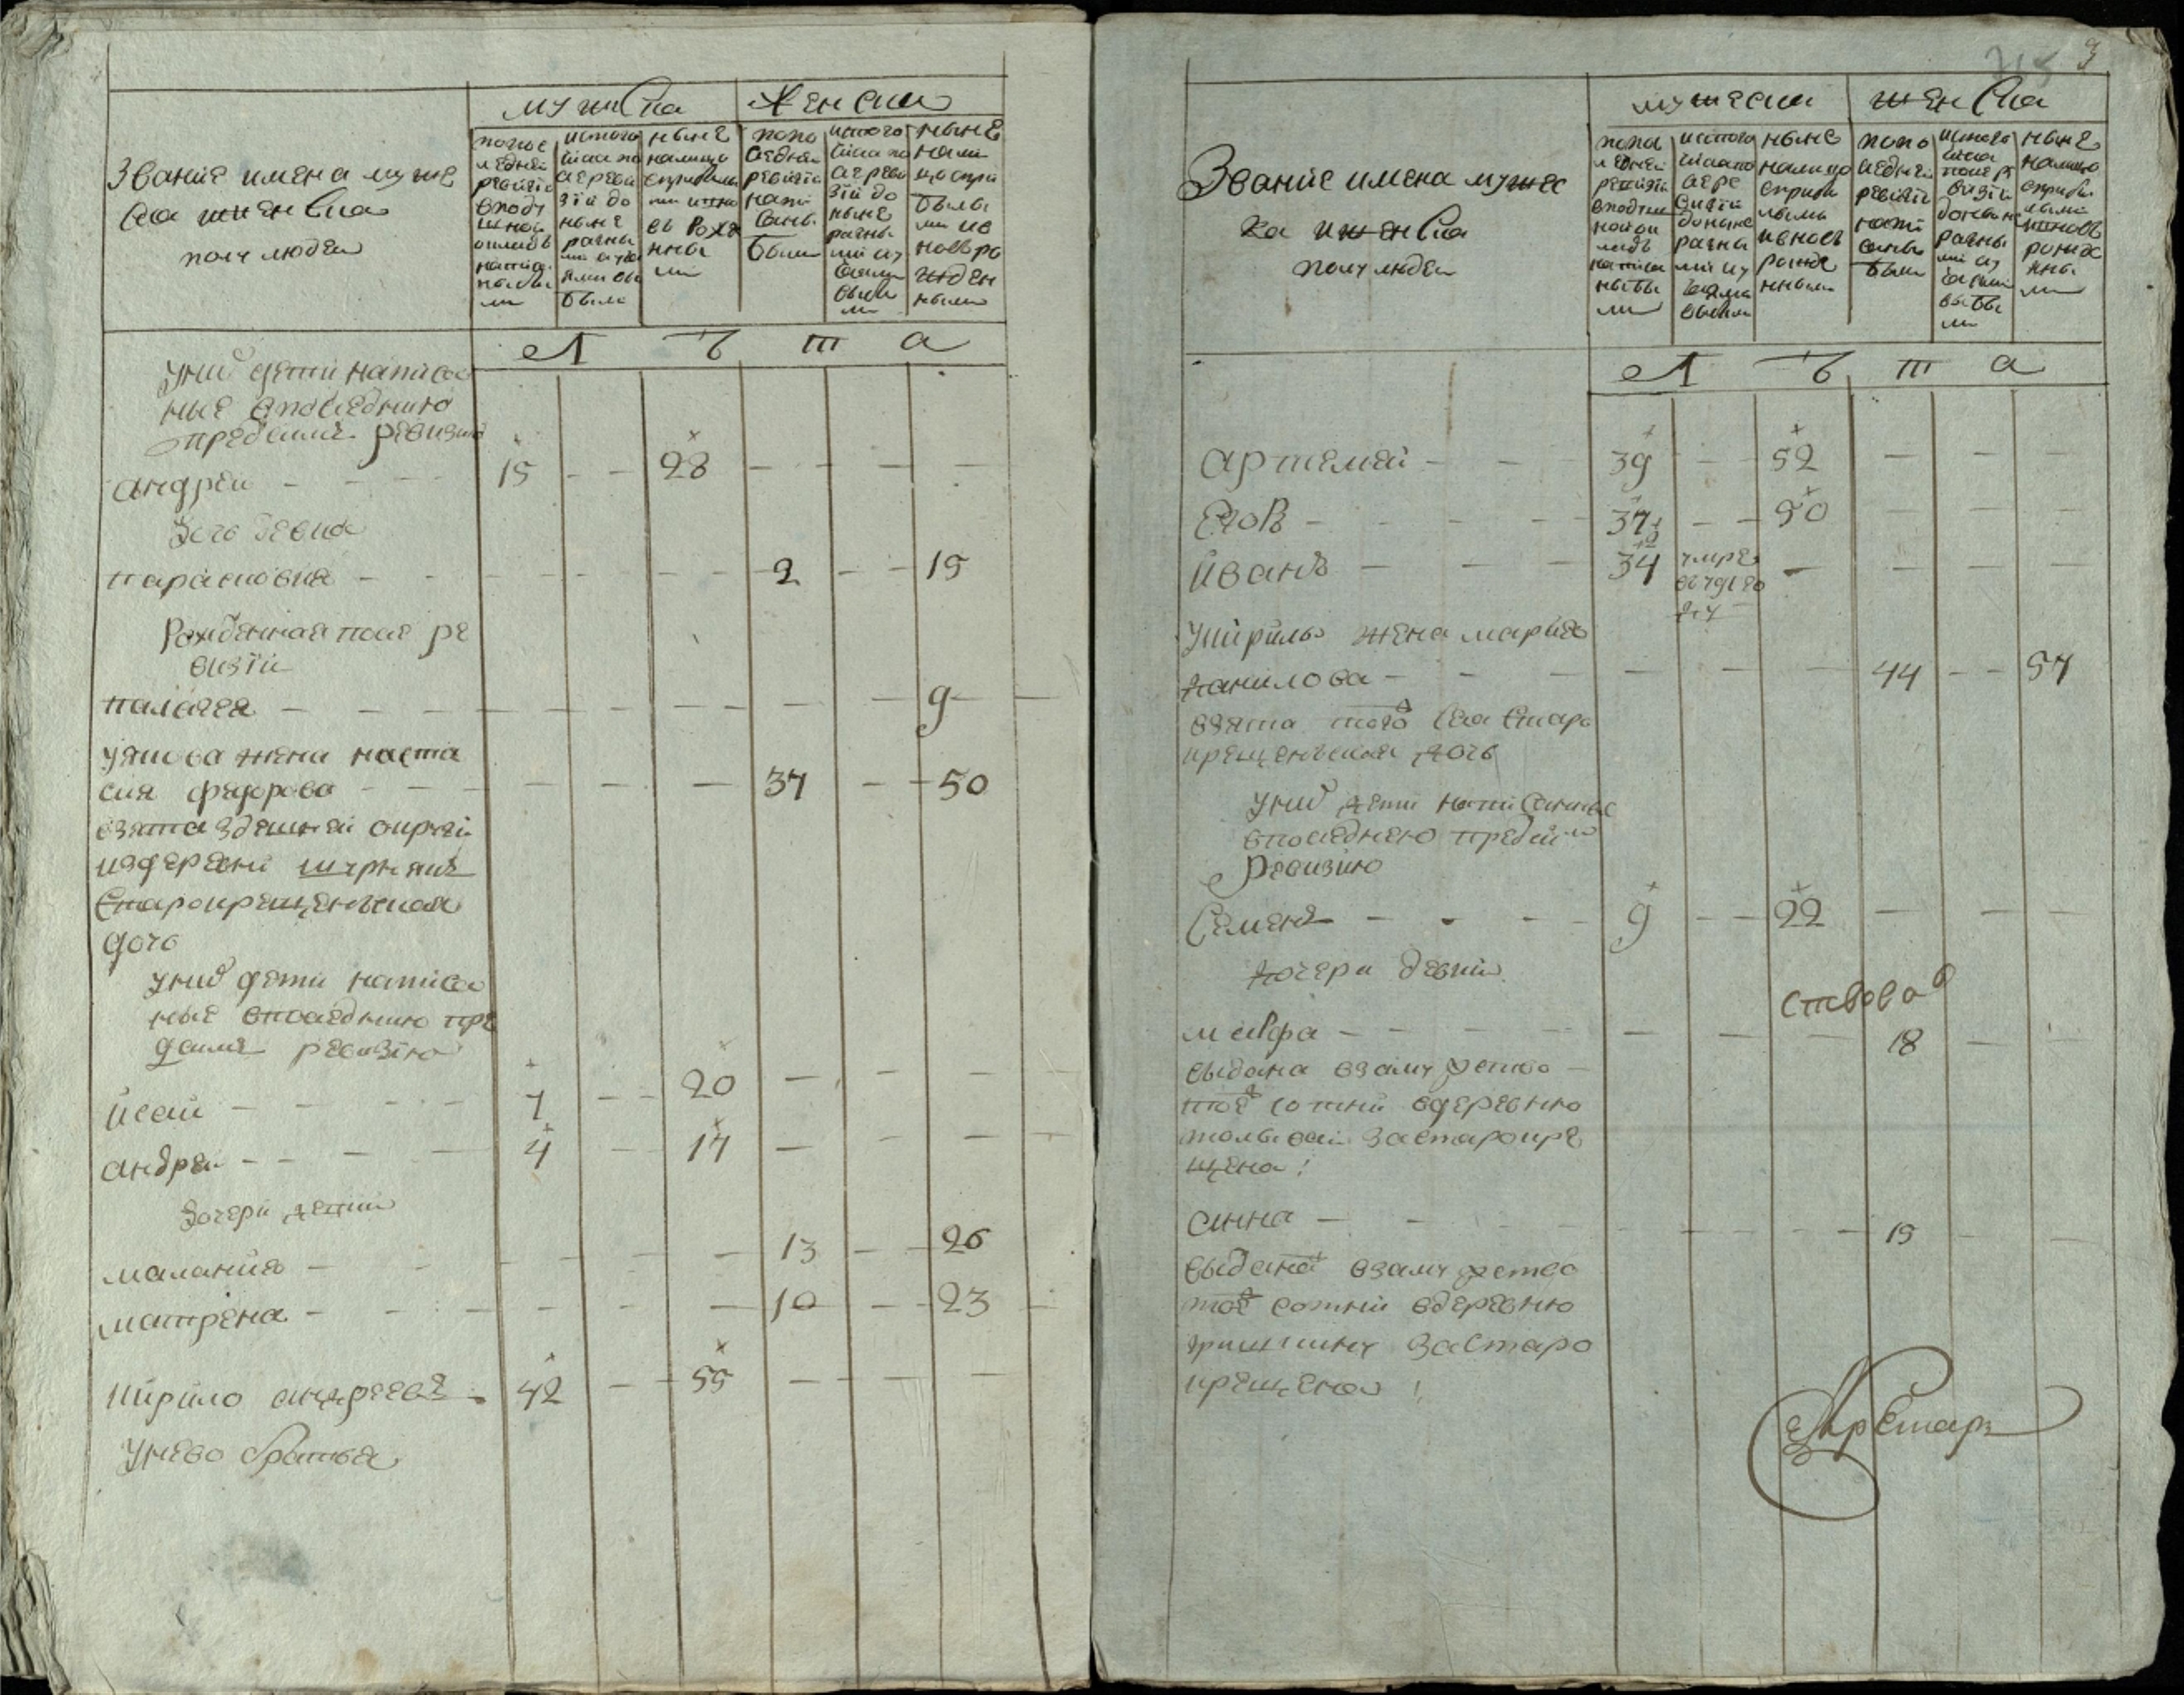 Званiе имена муже
ска и женска
полу людей
мужска
женска
по пос
ледней
ревизiи
в поду
шной
окладъ
написа
ны бы
ли
ис того
числа по
сле реви
зiи до
ныне
разны
ми случа
ями вы
было
ныне
налицо
с прибылы
ми и вно
въ рожде
нны
ми
по по
следней
ревизiи
напи
саны
были
ис того
числа по
сле реви
зiи до
ныне
разны
ми слу
чаями
выбы
ли
ныне
нали
цо с при
былы
ми и в
новь ро
жден
ными
л ѣ т а
у них дети написа
ные в последнюю
пред сим ревизию
андреи 15 28
у его девка
парасковия 2 15
Рожденная после ре
визiи
палагея 9
у якова жена наста
сия федорова 37 50
взята здешней округи
из деревни шурняк
старокрещенъская
дочь
у них дети написа
ные в последнюю пре
д сим ревизiю
исаи 7 20
андреи 4 17
дочери девки
малания 13 26
матрена 10 23
кирило андреевъ 42 55
у нево братья
3
Званiе имена мужес
ка и женска
полу людей
мужеска
женска
по пос
ледней
ревизiи
в подуш
ной ок
ладъ
написа
ны бы
ли
ис того
числа по
сле ре
визiи
до ныне
разны
ми слу
чаями
выбыли
ныне
налицо
с приб
ылыми
и вновь
рожде
нными
по по
следней
ревизiи
напи
саны
были
ис того
числа
после р
визiи
до ныне
разны
ми слу
чаями
выбы
ли
ныне
налицо
с прибы
лыми
и вновь
рожде
нны
ми
л ѣ т а
артемей 39 52
Егоръ 37 50
иванъ 34 умре
в
году
у кирилы жена марья
данилова 44 57
взята того ж села старо
крещенъская дочь
у них дети написанные
в последнюю пред сим
ревизию
семенъ 9 22
дочери девки
марфа 18
выдана в замужство
тое ж сотни в деревню
за старокре
щена
анна 15
выдана в замужство
тое ж сотни в деревню
за старо
крещена